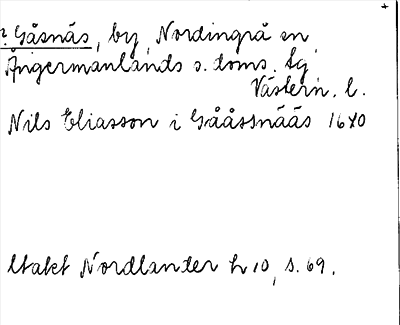 ? Gåsnäs, by, Nordingrå sn,
Ångermanlands s. doms. tg
Västern. l.
Nils Eliasson i Gååssnääs 1640
Utakt Nordlander h 10, s. 69.